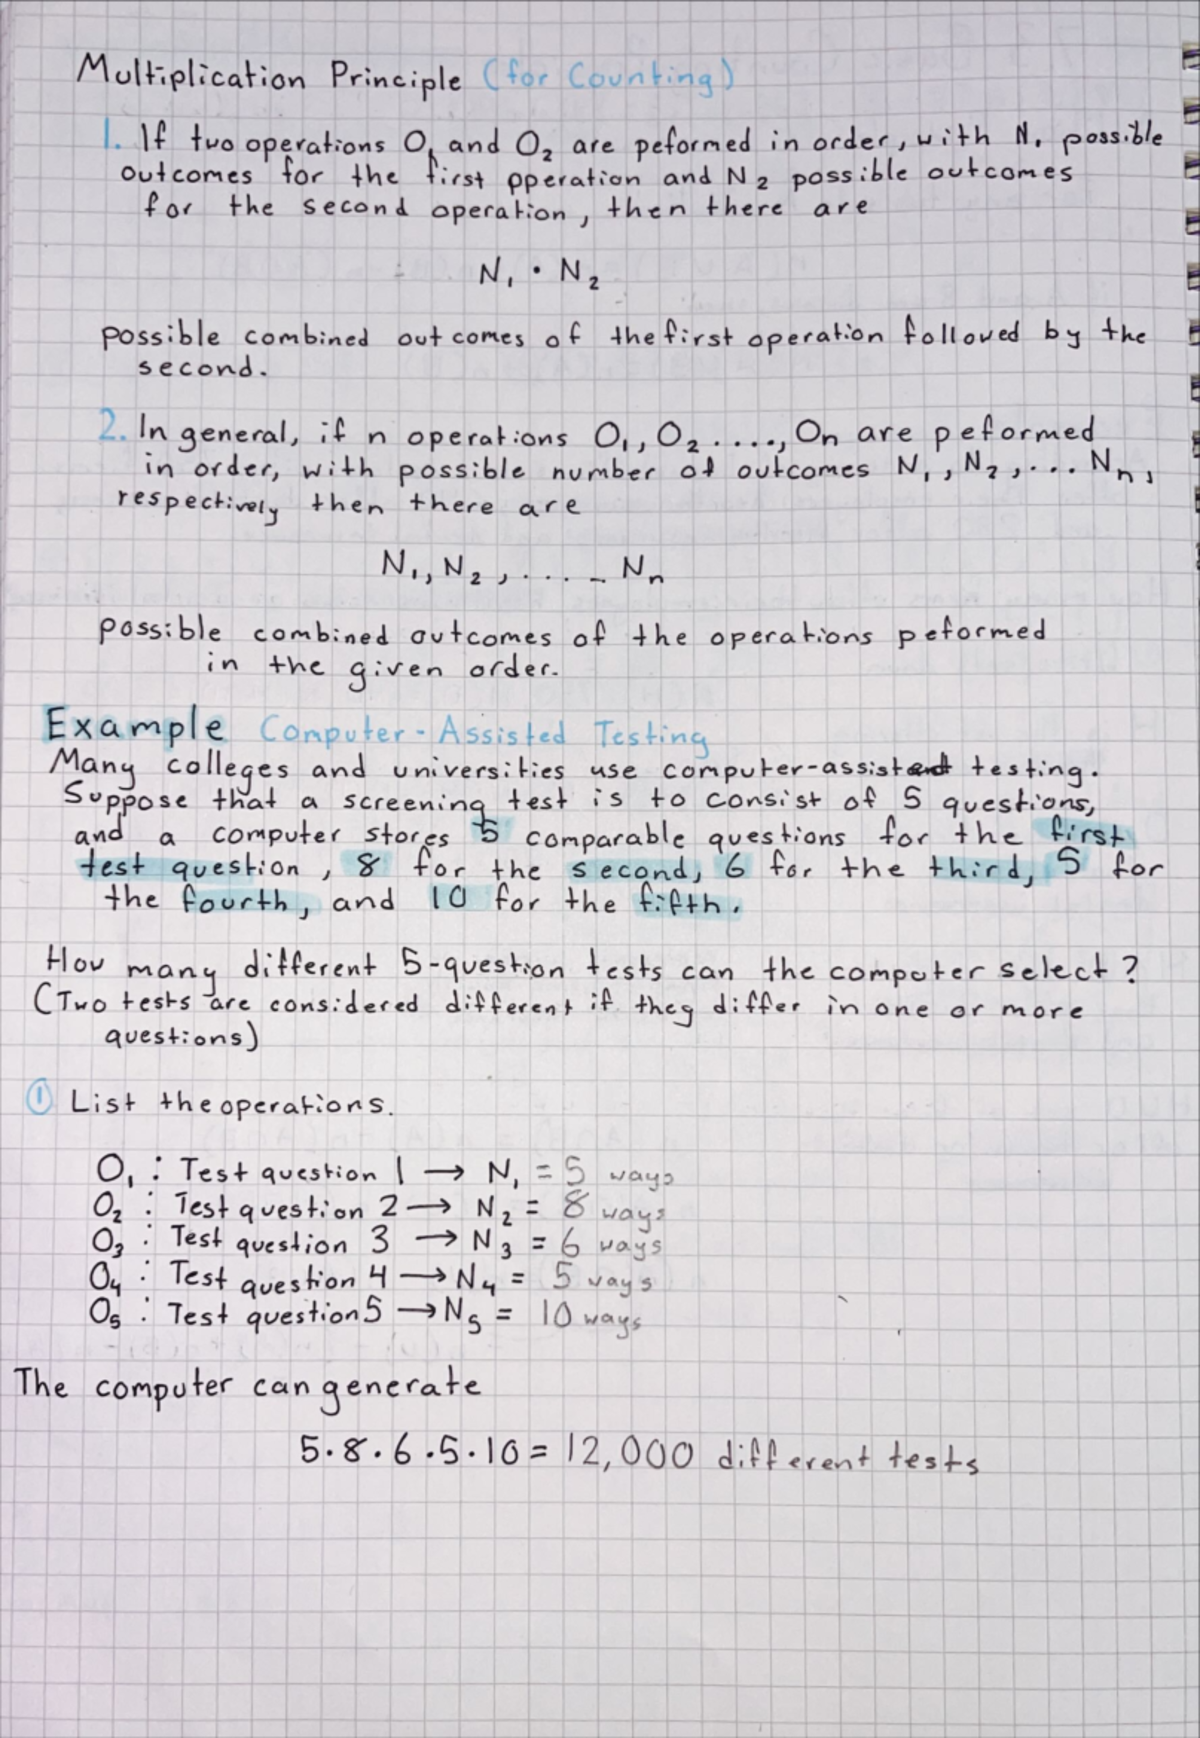 Multiplication Principle (for Counting)
1. If two operations O₁ and O₂ are peformed in order, with N₁ possible
outcomes for the first operation and N₂ possible outcomes
for the second operation, then there are
N₁ • N₂
possible combined outcomes of the first operation followed by the
second.
2. In general, if n operations O₁, O₂ ...., On are peformed
in order, with possible number of outcomes N₁, N₂, ... Nₙ,
respectively then there are
N₁, N₂, .... Nₙ
possible combined outcomes of the operations peformed
in the given order.
Example Computer-Assisted Testing
Many colleges and universities use computer-assisted testing.
Suppose that a screening test is to consist of 5 questions,
and a computer stores 5 comparable questions for the first
test question, 8 for the second, 6 for the third, 5 for
the fourth, and 10 for the fifth.
How many different 5-question tests can the computer select?
(Two tests are considered different if they differ in one or more
questions)
① List the operations.
O₁ : Test question 1 → N₁ = 5 ways
O₂ : Test question 2 → N₂ = 8 ways
O₃ : Test question 3 → N₃ = 6 ways
O₄ : Test question 4 → N₄ = 5 ways
O₅ : Test question 5 → N₅ = 10 ways
The computer can generate
5·8·6·5·10 = 12,000 different tests